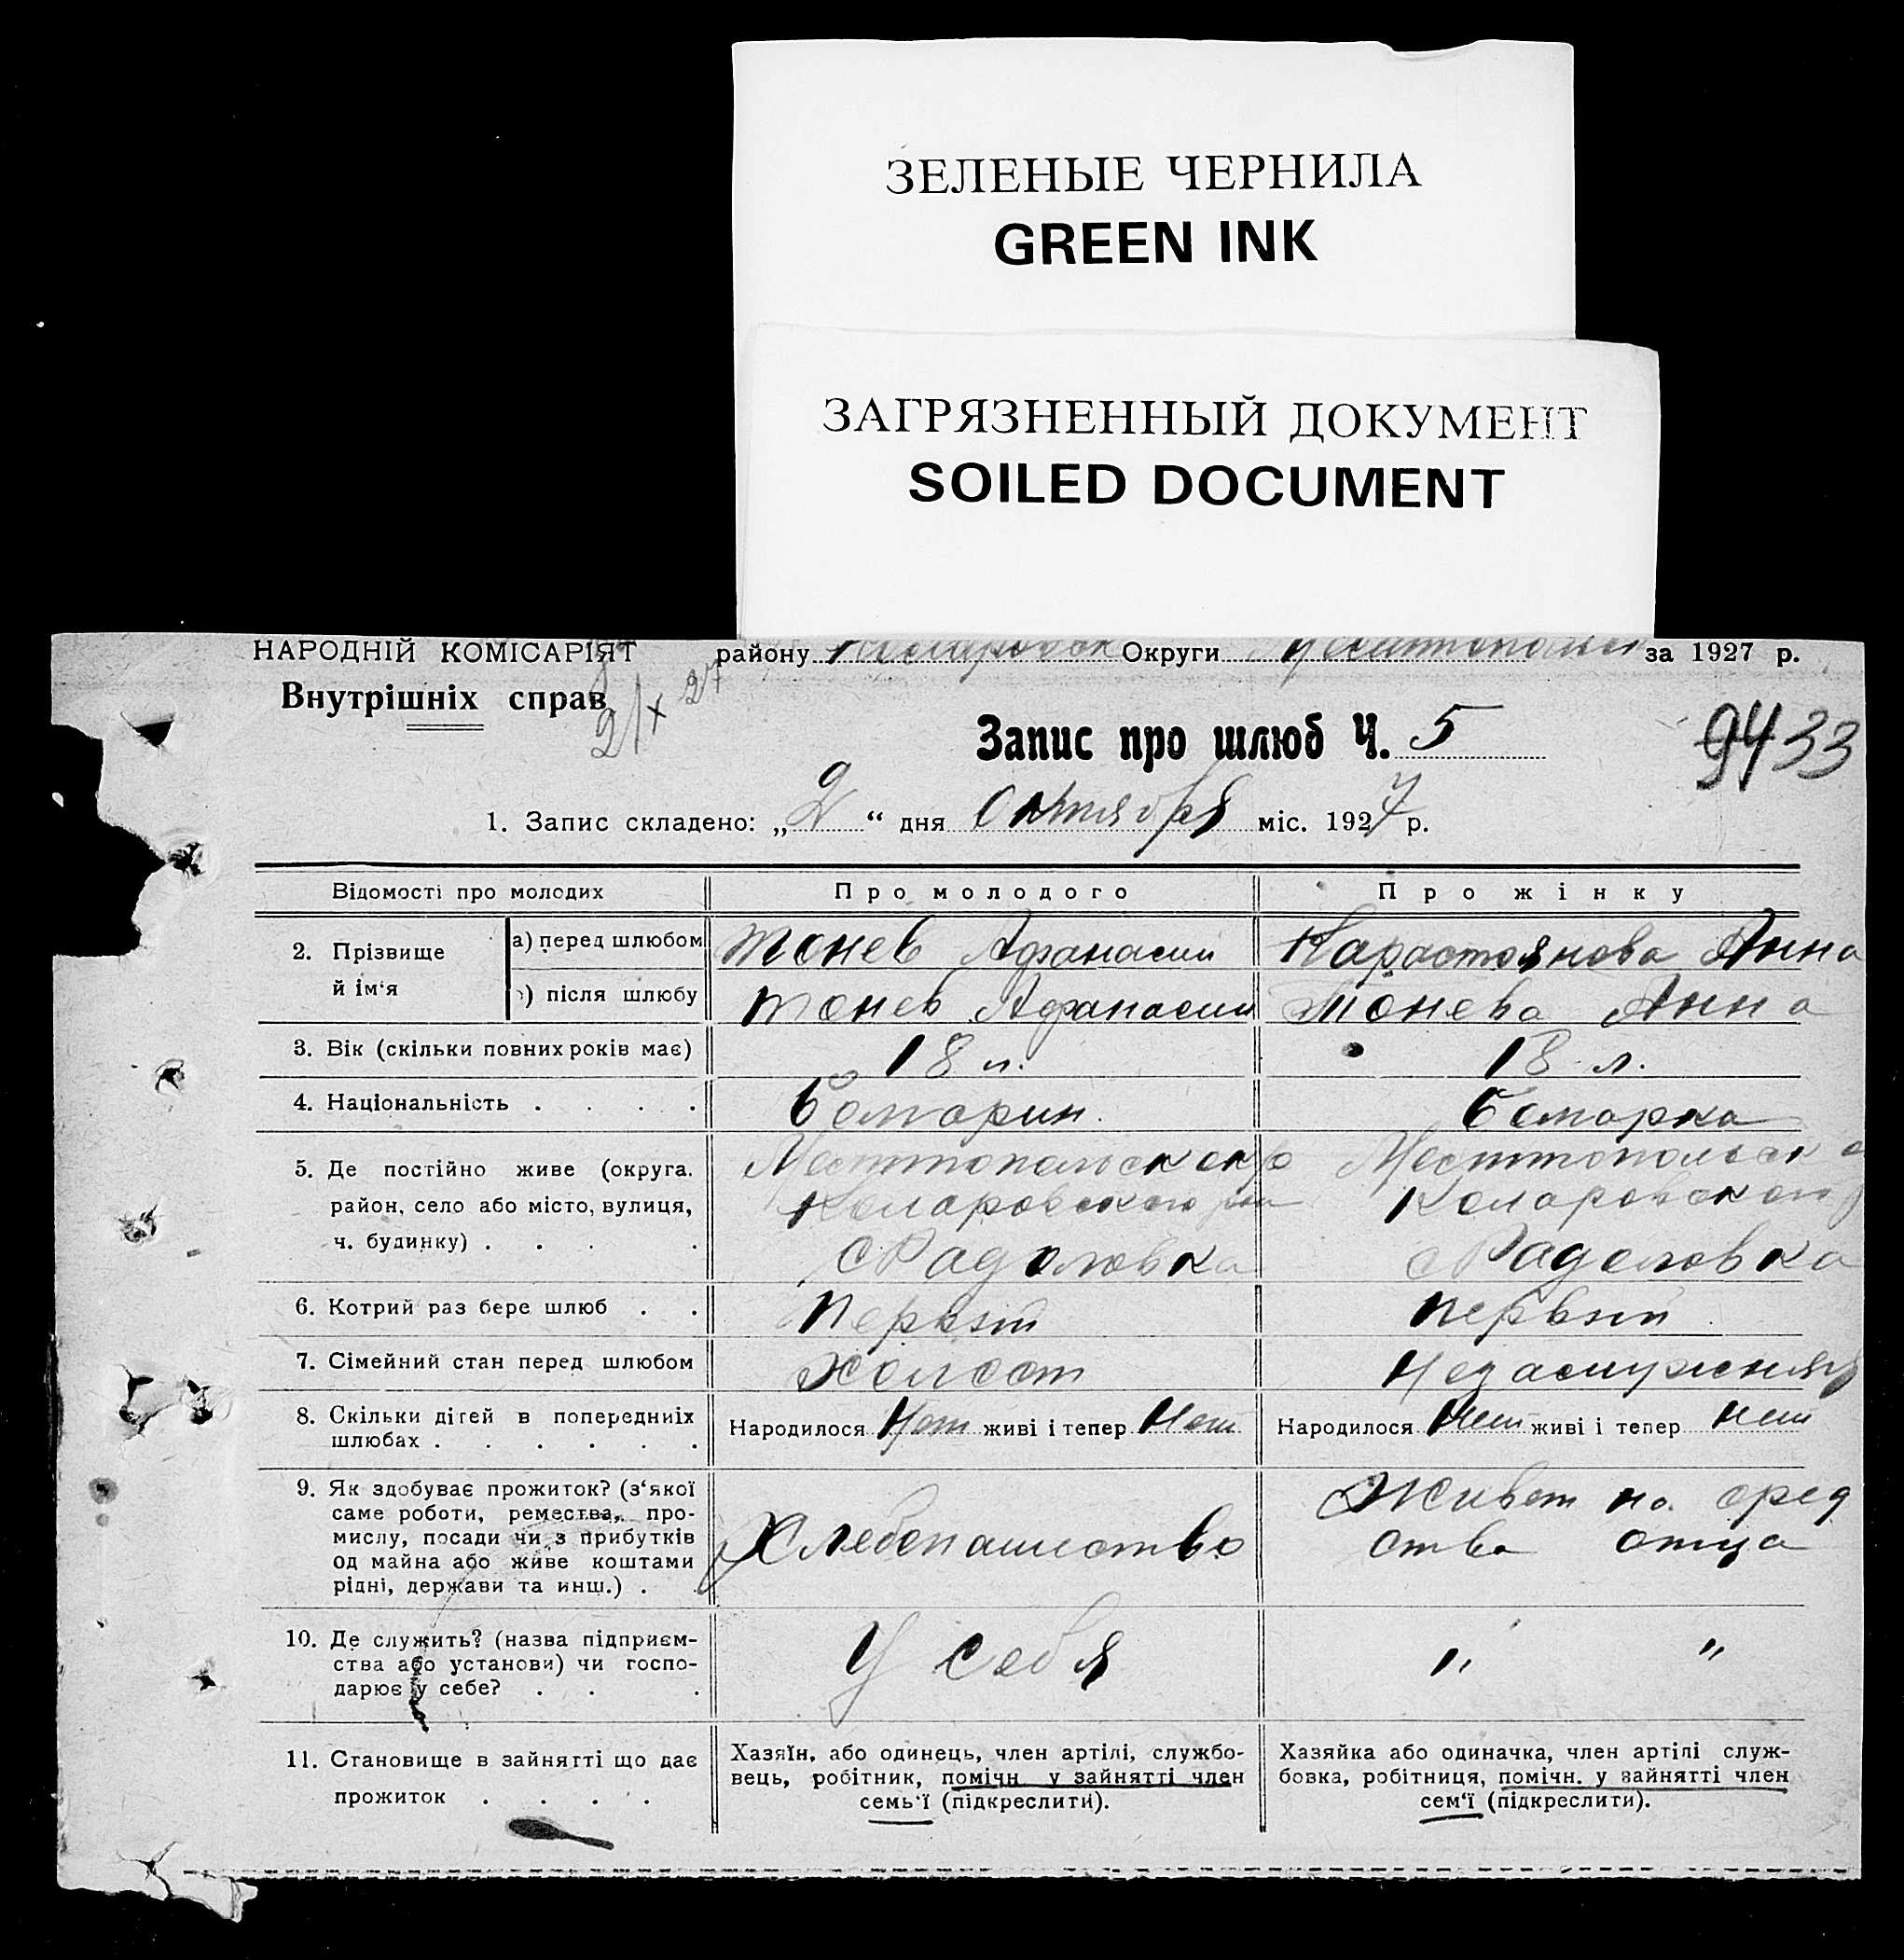 ЗЕЛЕНЫЕ ЧЕРНИЛА
GREEN INK
ЗАГРЯЗНЕННЫЙ ДОКУМЕНТ
SOILED DOCUMENT
НАРОДНІЙ КОМІСАРІЯТ
Внутрішніх справ
21/X 27
району Округи за 1927 р.
Запис про шлюб Ч. 5
9433
1. Запис складено: „2“ дня Октября міс. 1927 р.
Відомості про молодих
Про молодого
Про жінку
2. Прізвище й ім‘я
а) перед шлюбом
Тонев Афанасий
Карастоянова Анна
) після шлюбу
Тонев Афанасий
Тонева Анна
3. Вік (скільки повних років має)
18 л.
18 л.
4. Національність . . . .
болгарин.
болгарка
5. Де постійно живе (округа,
район, село або місто, вулиця,
ч. будинку) . . . .
Меліттопольского
Коларовского рна
с Радоловка
Меліттопольск
Коларовского р
с Радоловка
6. Котрий раз бере шлюб . .
Первый
первый
7. Сімейний стан перед шлюбом
Холост
Незамужняя
8. Скільки дітей в попередниіх
шлюбах . . . . . .
Народилося Нет живі і тепер Нет
Народилося Нет живі і тепер нет
9. Як здобуває прожиток? (з‘якої
саме роботи, ремества, про-
мислу, посади чи з прибутків
од майна або живе коштами
рідні, держави та инш.) .
Хлебопашество
Живет на сред
ства отца
10. Де служить? (назва підприєм-
ства або установи) чи госпо-
дарює у себе? . . .
У себя
" "
11. Становище в зайнятті що дає
прожиток . . . .
Хазяїн, або одинець, член артілі, службо-
вець, робітник, помічн. у зайнятті член
семь‘ї (підкреслити).
Хазяйка або одиначка, член артілі служ-
бовка, робітниця, помічн. у зайнятті член
сем‘ї (підкреслити).